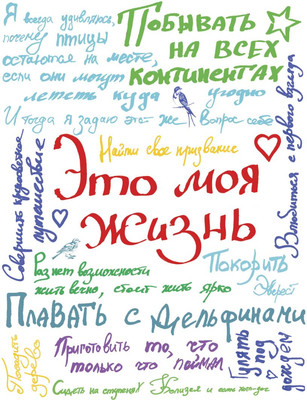 Я всегда удивлялась,
почему птицы
остаются на месте,
если они могут
лететь куда угодно
И тогда я задаю этот же вопрос себе
Побывать
на всех
континентах
Найти своё призвание
Это моя
жизнь
Совершить кругосветное
путешествие
Влюбиться с первого взгляда
Раз нет возможности
жить вечно, стоит жить ярко
Покорить
Эверест
Плавать с дельфинами
Посадить
дерево
Приготовить то, что
только что поймал
Гулять
под
дождем
Сидеть на ступенях